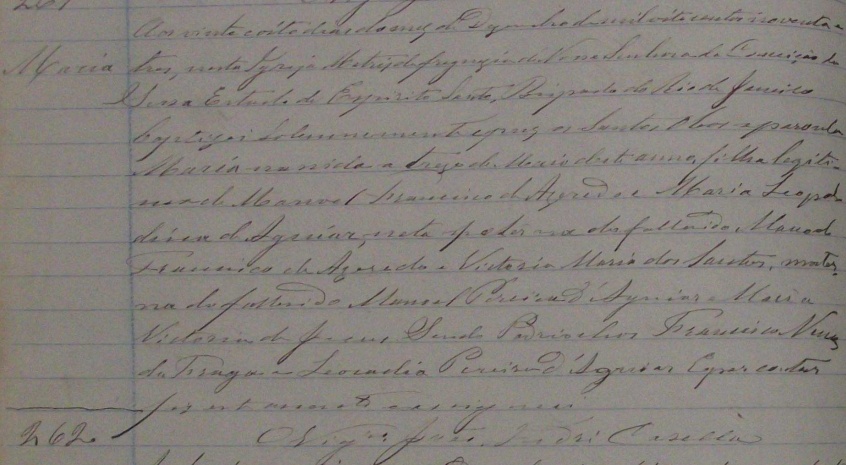 Aos vinte e oito dias do mez de Dezembro de mil oito centos noventa e
Maria tres, nesta Igreja Matriz da freguezia de Nossa Senhora da Conceição da
Serra Estado do Espirito Santo, Bispado do Rio de Janeiro
baptizei solemnemente e puz os Santos Oleos a parvula
Maria nascida a treze de Maio deste anno, filha legiti-
ma de Manoel Francisco de Azeredo e Maria Leopol
dina d'Aguiar, neta paterna do fallecido Manoel
Francisco de Azeredo e Victoria Maria dos Santos, mater-
na do fallecido Manoel Pereira d'Aguiar e Maria
Victoria de Jesus Sendo Padrinhos Francisco Nunes
da Fraga e Leocadia Pereira d'Aguiar E para constar
fiz este assento e assignei
262. O Vigrº José Casella